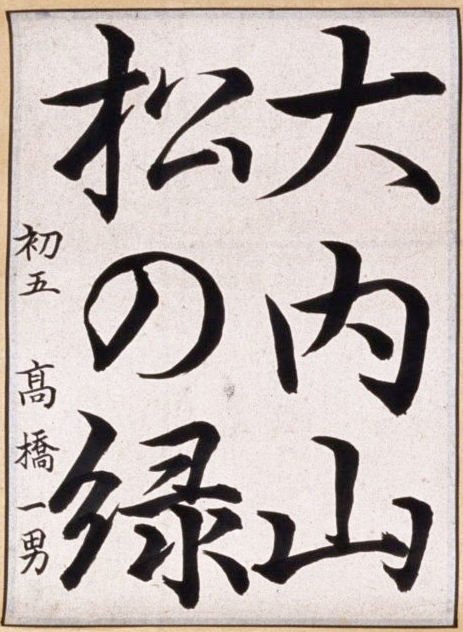 大内山
松の緑
初五 髙橋一男